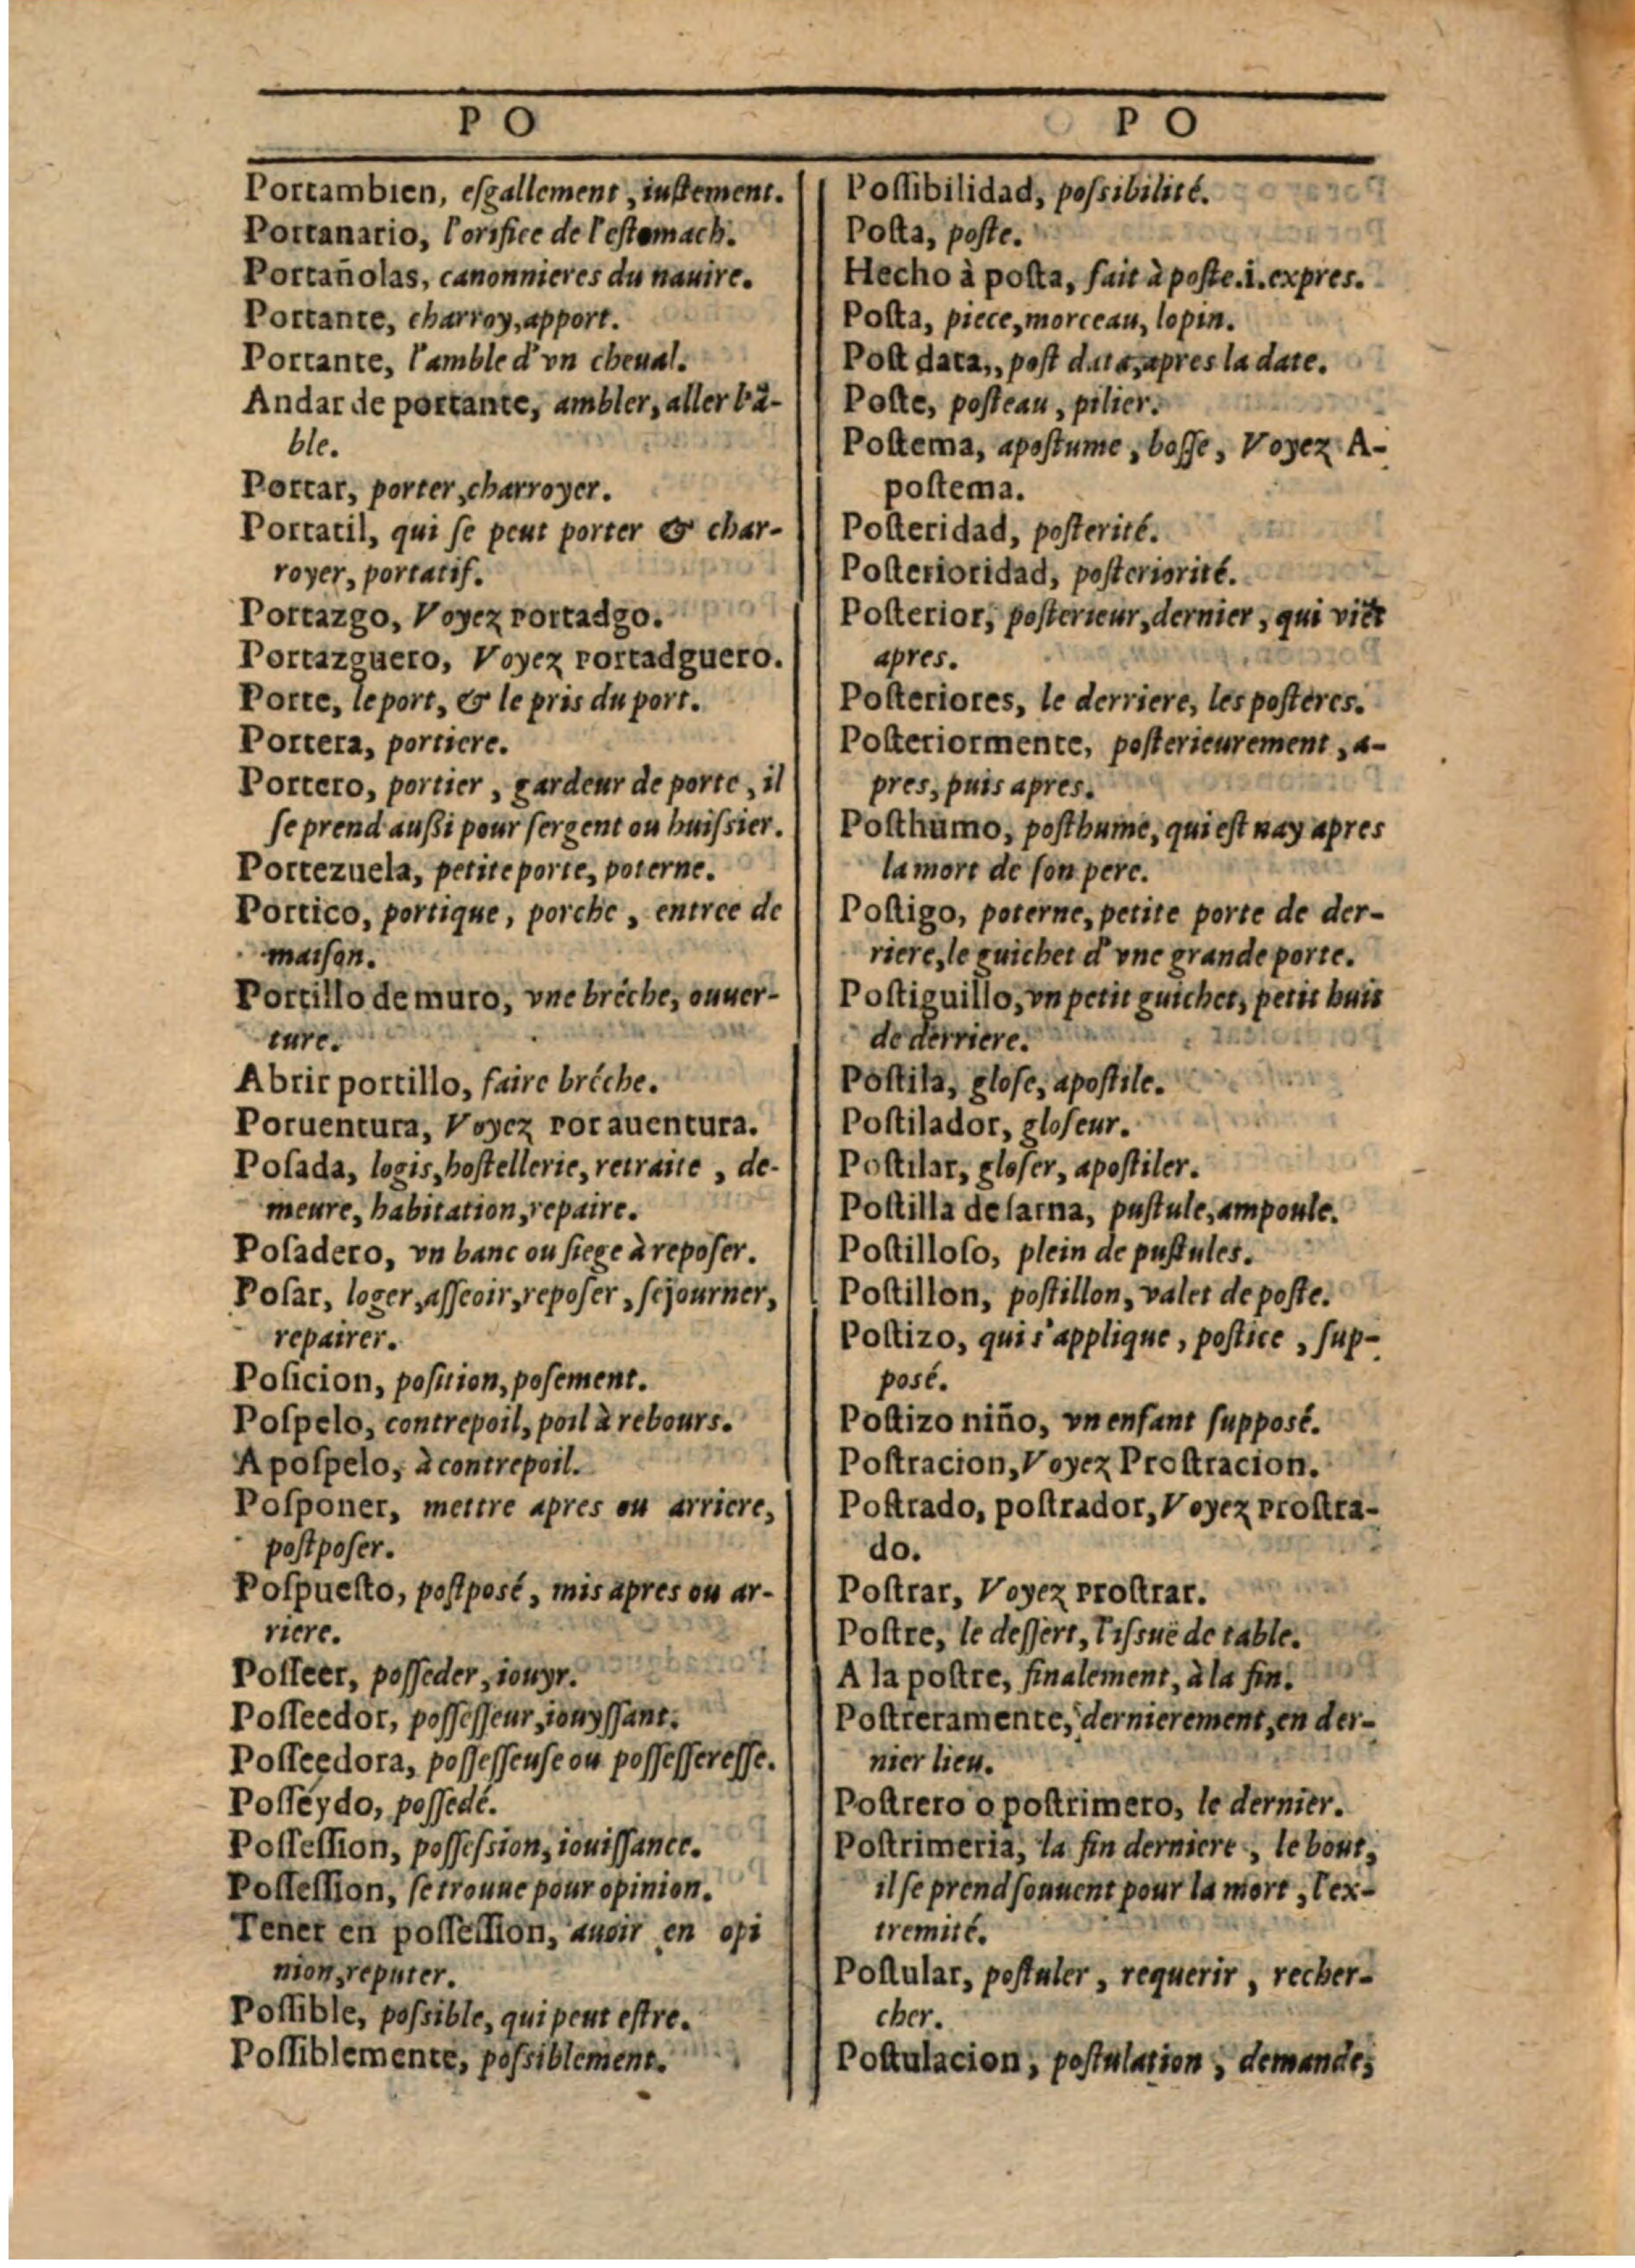 PO
Portambien, eſgallement, iuſtement.
Portanario, l'orifice de l'eſtomach.
Portañolas, canonnieres du nauire.
Portante, charroy, apport.
Portante, l'amble d'vn cheual.
Andar de portante, ambler, aller l'ã-
ble.
Portar, porter, charroyer.
Portatil, qui ſe peut porter & char-
royer, portatif.
Portazgo, Voyez Portadgo.
Portazguero, Voyez Portadguero.
Porte, le port, & le pris du port.
Portera, portiere.
Portero, portier, gardeur de porte, il
ſe prend außi pour ſergent ou huiſsier.
Portezuela, petite porte, poterne.
Portico, portique, porche, entree de
maiſon.
Portillo de muro, vne bréche, ouuer-
ture.
Abrir portillo, faire bréche.
Poruentura, Voyez Por auentura.
Poſada, logis, hoſtellerie, retraite, de-
meure, habitation, repaire.
Poſadero, vn banc ou ſiege à repoſer.
Poſar, loger, aſſeoir, repoſer, ſejourner,
repairer.
Poſicion, poſition, poſement.
Poſpelo, contrepoil, poil à rebours.
A poſpelo, à contrepoil.
Poſponer, mettre apres ou arriere,
poſtpoſer.
Poſpueſto, poſtposé, mis apres ou ar-
riere.
Poſſeer, poſſeder, iouyr.
Poſſeedor, poſſeſſeur, iouyſſant.
Poſſeedora, poſſeſſeuſe ou poſſeſſereſſe.
Poſſéydo, poſſedé.
Poſſeſſion, poſſeſsion, iouiſſance.
Poſſeſſion, ſe trouue pour opinion.
Tener en poſſeſſion, auoir en opi
nion, reputer.
Poſſible, poſsible, qui peut eſtre.
Poſſiblemente, poſsiblement.
PO
Poſſibilidad, poſsibilité.
Poſta, poſte.
Hecho à poſta, fait à poſte.i.expres.
Poſta, piece, morceau, lopin.
Poſt data,, poſt data, apres la date.
Poſte, poſteau, pilier.
Poſtema, apoſtume, boſſe, Voyez A-
poſtema.
Poſteridad, poſterité.
Poſterioridad, poſteriorité.
Poſterior, poſterieur, dernier, qui viẽt
apres.
Poſteriores, le derriere, les poſteres.
Poſteriormente, poſterieurement, a-
pres, puis apres.
Poſthumo, poſthume, qui eſt nay apres
la mort de ſon pere.
Poſtigo, poterne, petite porte de der-
riere, le guichet d'vne grande porte.
Poſtiguillo, vn petit guichet, petit huis
de derriere.
Poſtila, gloſe, apoſtile.
Poſtilador, gloſeur.
Poſtilar, gloſer, apoſtiler.
Poſtilla de ſarna, puſtule, ampoule.
Poſtilloſo, plein de puſtules.
Poſtillon, poſtillon, valet de poſte.
Poſtizo, qui s'applique, poſtice, ſup-
posé.
Poſtizo niño, vn enfant ſupposé.
Poſtracion, Voyez Proſtracion.
Poſtrado, poſtrador, Voyez Proſtra-
do.
Poſtrar, Voyez Proſtrar.
Poſtre, le deſſert, l'iſsuë de table.
A la poſtre, finalement, à la fin.
Poſtreramente, dernierement, en der-
nier lieu.
Poſtrero o poſtrimero, le dernier.
Poſtrimeria, la fin derniere, le bout,
il ſe prend ſouuent pour la mort, l'ex-
tremité.
Poſtular, poſtuler, requerir, recher-
cher.
Poſtulacion, poſtulation, demande,